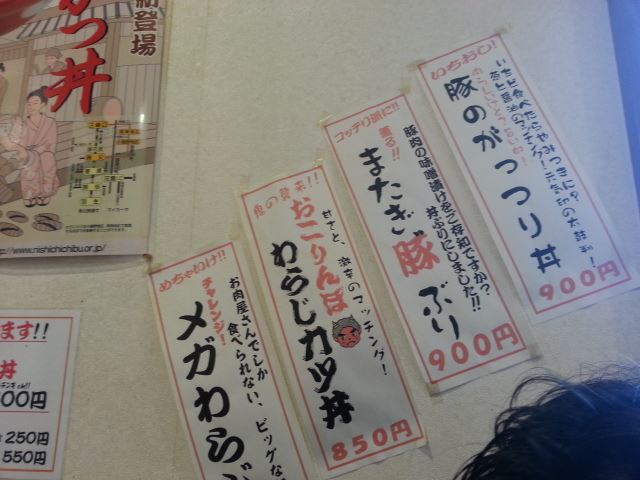 いちおし!
いちど食べたらやみつきに?
豚のがっつり丼
900円
コッテリ派に!!
薫る!!
豚肉の味噌漬けをご存知ですか?
丼ぶりにしました!!
またぎ豚ぶり
900円
鬼の襲来!!
甘さと、激辛のマッチング!
おこりんぼ
わらじカツ丼
850円
めちゃいけ!!
お肉屋さんでしか
食べられない、ビッグな
チャレンジ!
メガわらじ
初登場
かつ丼
http://www.nishichichibu.or.jp/
ます!!
丼
00円
250円
550円